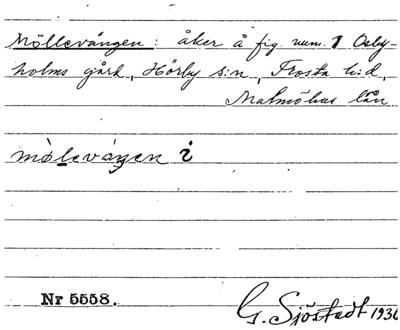 Möllevången: åker å fig. num. 1 Osby-
holms gård, Hörby s:n, Frosta h:d,
Malmöhus län
mòleváŋen i
Nr 5558.
G. Sjöstedt 1936